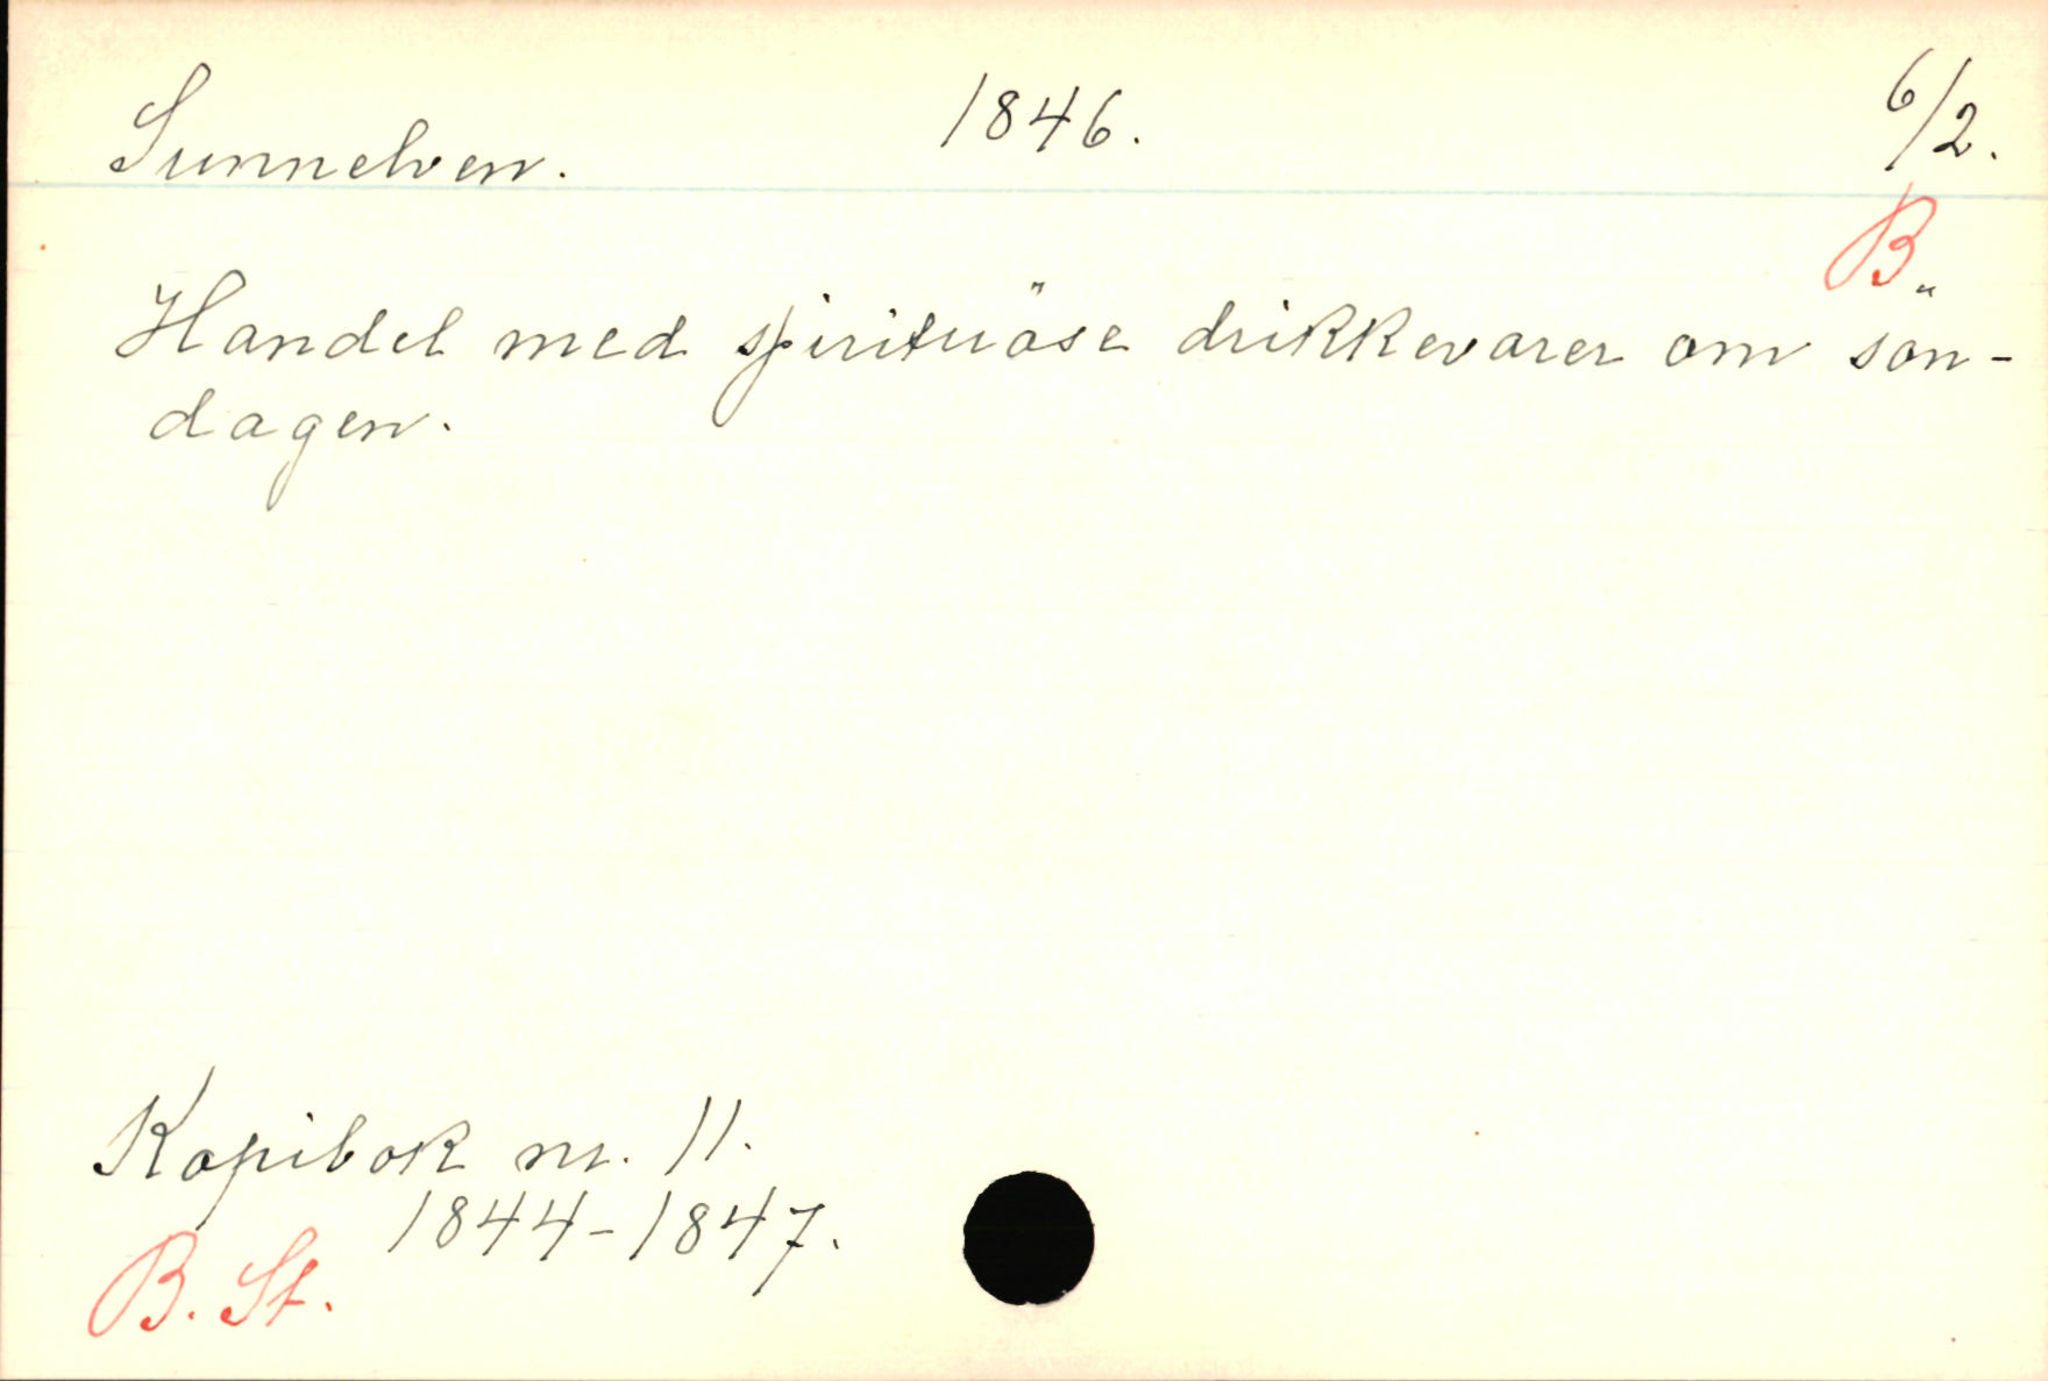 Sunnelven. 1846. 6/2.
B.
Handel med spirituöse drikkevarer om sön-
dagen.
Kopibok nr. 11.
1844-1847.
B. St.